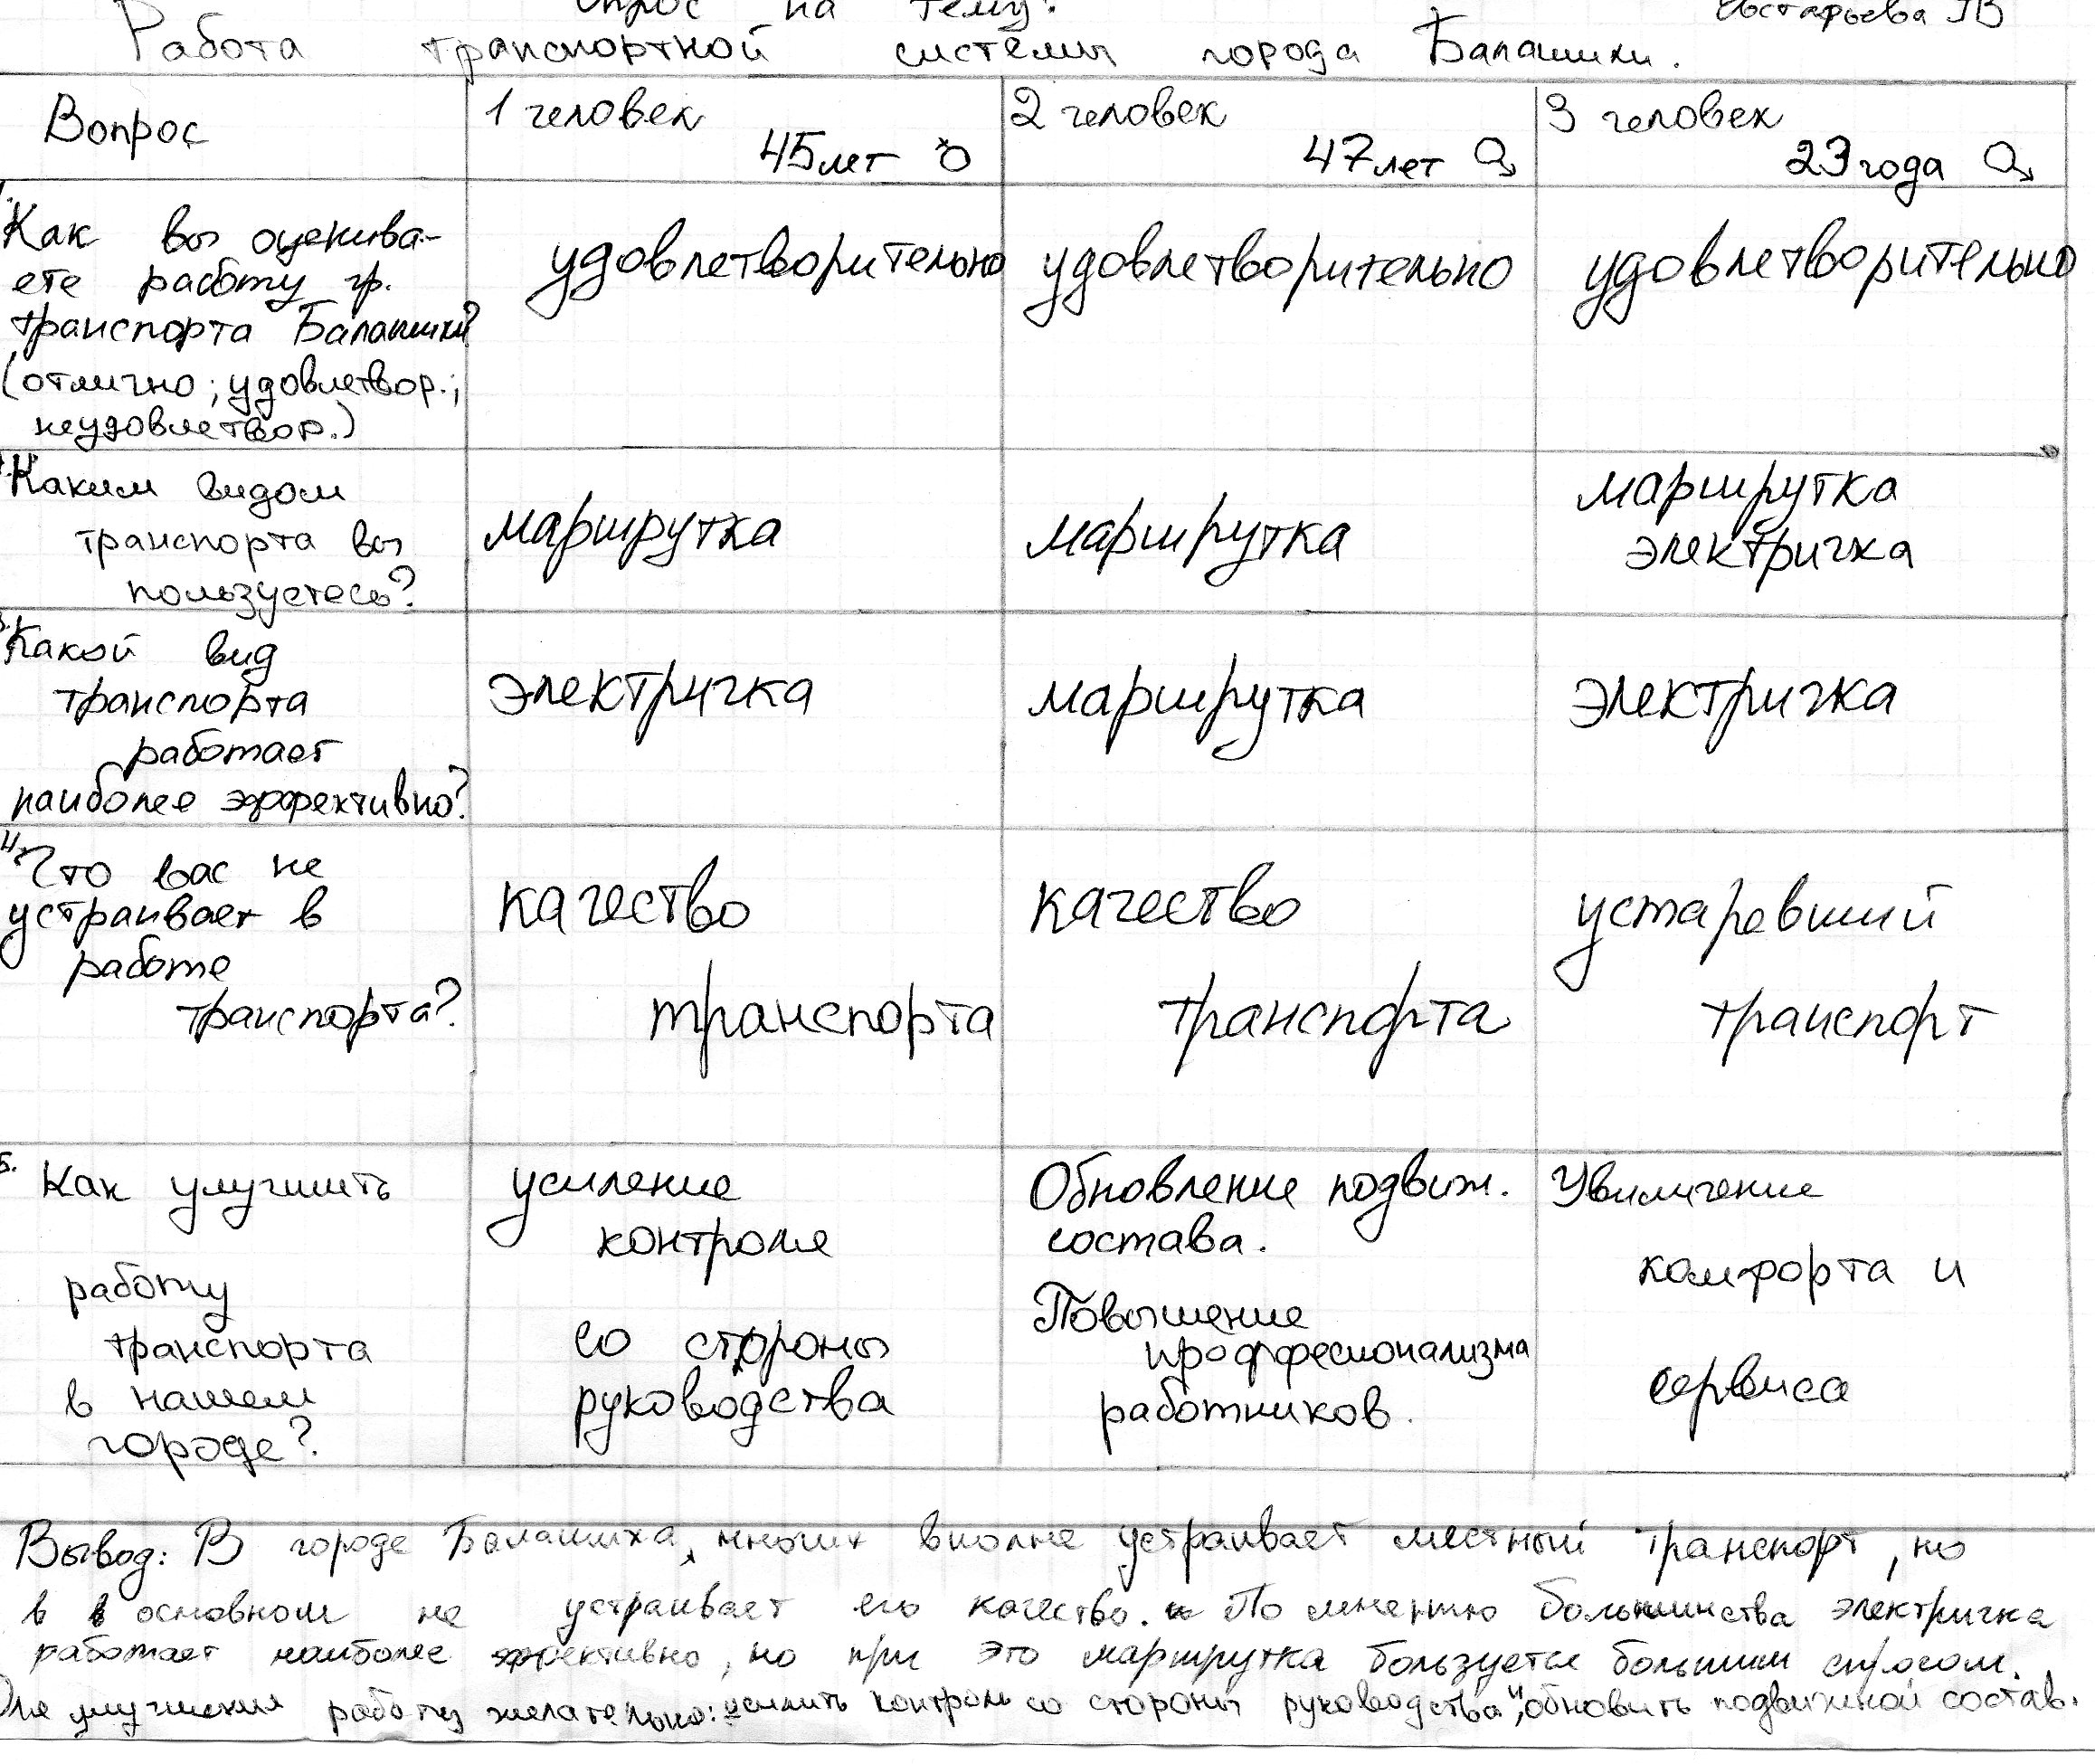 Опрос на тему: Евстафьева ТВ
Работа транспортной системы города Балашихи.
Вопрос
1 человек
45лет ♂
2 человек
47лет ♀
3 человек
23года ♀
1.
Как вы оценива-
ете работу гр.
транспорта Балашихи?
(отлично; удовлетвор.;
неудовлетвор.)
удовлетворительно
удовлетворительно
удовлетворительно
Каким видом
транспорта вы
пользуетесь?
маршрутка
маршрутка
маршрутка
электричка
3.
Какой вид
транспорта
работает
наиболее эффективно?
электричка
маршрутка
электричка
4
Что вас не
устраивает в
работе
транспорта?
качество
транспорта
качество
транспорта
устаревший
транспорт
5.
Как улучшить
работу
транспорта
в нашем
городе?
усиление
контроля
со стороны
руководства
Обновление подвиж.
состава.
Повышение
проффесионализма
работников.
Увиличение
комфорта и
сервиса
Вывод: В городе Балашиха, многих вполне устраивает местный транспорт, но
в в основном не устраивает его качество. По мнению большинства электричка
работает наиболее эффективно, но при это маршрутка бользуется большим спросом.
Для улучшения работы желательно: усилить контроль со стороны руководства и, обновить подвижной состав.